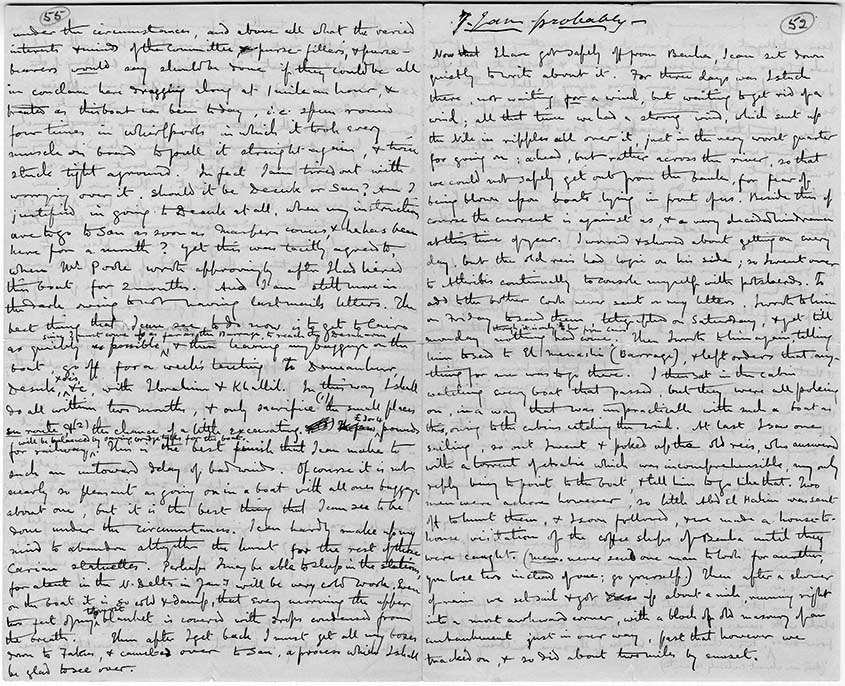 55
under the circumstances, and above all what the varied
interests & minds of the Committee & purse-fillers, & purse-
bearers would say should be done if they could be all
in conclave here dragging along at 1 mile an hour, &
treated as this boat has been today, i.e. spun round
four times in whirlpools in which it took every
muscle on board to pull it straight again, & three
stuck tight aground. In fact I am tired out with
worrying over it. Should it be Desuk or San? Am I
justified in going to Desuk at all, when my instructions
are to go to San as soon as Maspero comes, & he has been
here for a month? Yet this was tacitly agreed to,
when Mr Poole wrote approvingly after I had hired
this boat for 2 months. And I am still more in
the dark owing to not having last mails letters. The
best thing that I can see to do now is to get to Cairo
as quickly as possible, & then leaving my baggage on the
boat, go off for a weeks tenting to Damanhur,
Desuk, &c with Ibrahim & Khallil. In this way I shall
do all within two months, & only sacrifice (1) the small places
en route & (2) the chance of a little excavating. pounds
will be balanced by saving on for the boat.
for railway. This is the best finish that I can make to
such an untoward delay of bad winds. Of course it is not
nearly so pleasant as going on in a boat with all ones baggage
about one, but it is the best thing that I can see to be
done under the circumstances. I can hardly make up my
mind to abandon altogether the hunt for the rest of those
Carian statuettes. Perhaps I may be able to sleep in the stations,
for a tent in the N. Delta in Jan y will be very cold work. Even
on the boat it is so cold & damp, that every morning the upper
two feet of my blanket is covered with drops condensed from
the breath. Then after I get back I must get all my boxes
down to Fakus, & camelled over to San, a process which I shall
be glad to see over.
7. Jan probably
52
Now that I have got safely off from Benha, I can sit down
quietly to write about it. For three days was I stuck
there, not waiting for a wind, but waiting to get rid of a
wind; all that time we had a strong wind, which sent up
the Nile in ripples all over it, just in the very worst quarter
for going on; ahead, but rather across the river, so that
we could not safely get out from the bank, for fear of
being blown upon boats lying in front of us. Beside this of
course the current is against us, & a very decided hindrance
at this time of year. I worried & stewed about getting on every
day, but the old reis had logic on his side; so I went over
to Athribis continually to console myself with potsherds. To
add to the bother Cook never sent on my letters. I wrote to him
on Friday to send them, telegrafted on Saturday, & yet till
Monday nothing had come. Then I wrote to him again, telling
him to send to El Menashi (Barrage), & left orders that any-
thing for me was to go there. I then sat in the cabin
watching every boat that passed, but they were all poling
on, in a way that was impracticable with such a boat as
this, owing to the cabins catching the wind. At last I saw one
sailing, so out I went & poked up the old reis, who answered
with a torrent of Arabic which was incomprehensible, my only
reply being to point to the boat & tell him to go like that. Two
men were ashore however, so little Abd el Halim was sent
off to hunt them, & I soon followed, & we made a house-to-
house visitation of the coffee shops of Benha until they
were caught. (mem. never send one man to look for another,
you lose two instead of one; go yourself.) Then after a shower
of rain we set sail & got up about a mile, running right
into a most awkward corner, with a block of old masonry of an
embankment just in our way, past that however we
tracked on, & so did about two miles by sunset.